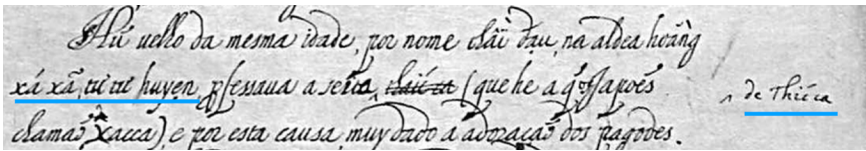 Hũ uelho da mesma idade, por nome chãi dau, na aldea hoãng
xá xã, từ từ huyẹn, pfessaua a seita ^ chaiéca (que he a q̃ os Japões
chamaõ Xacca), e por esta causa muy dado á adoraçaõ dos pagodes.
^ de Thiéca